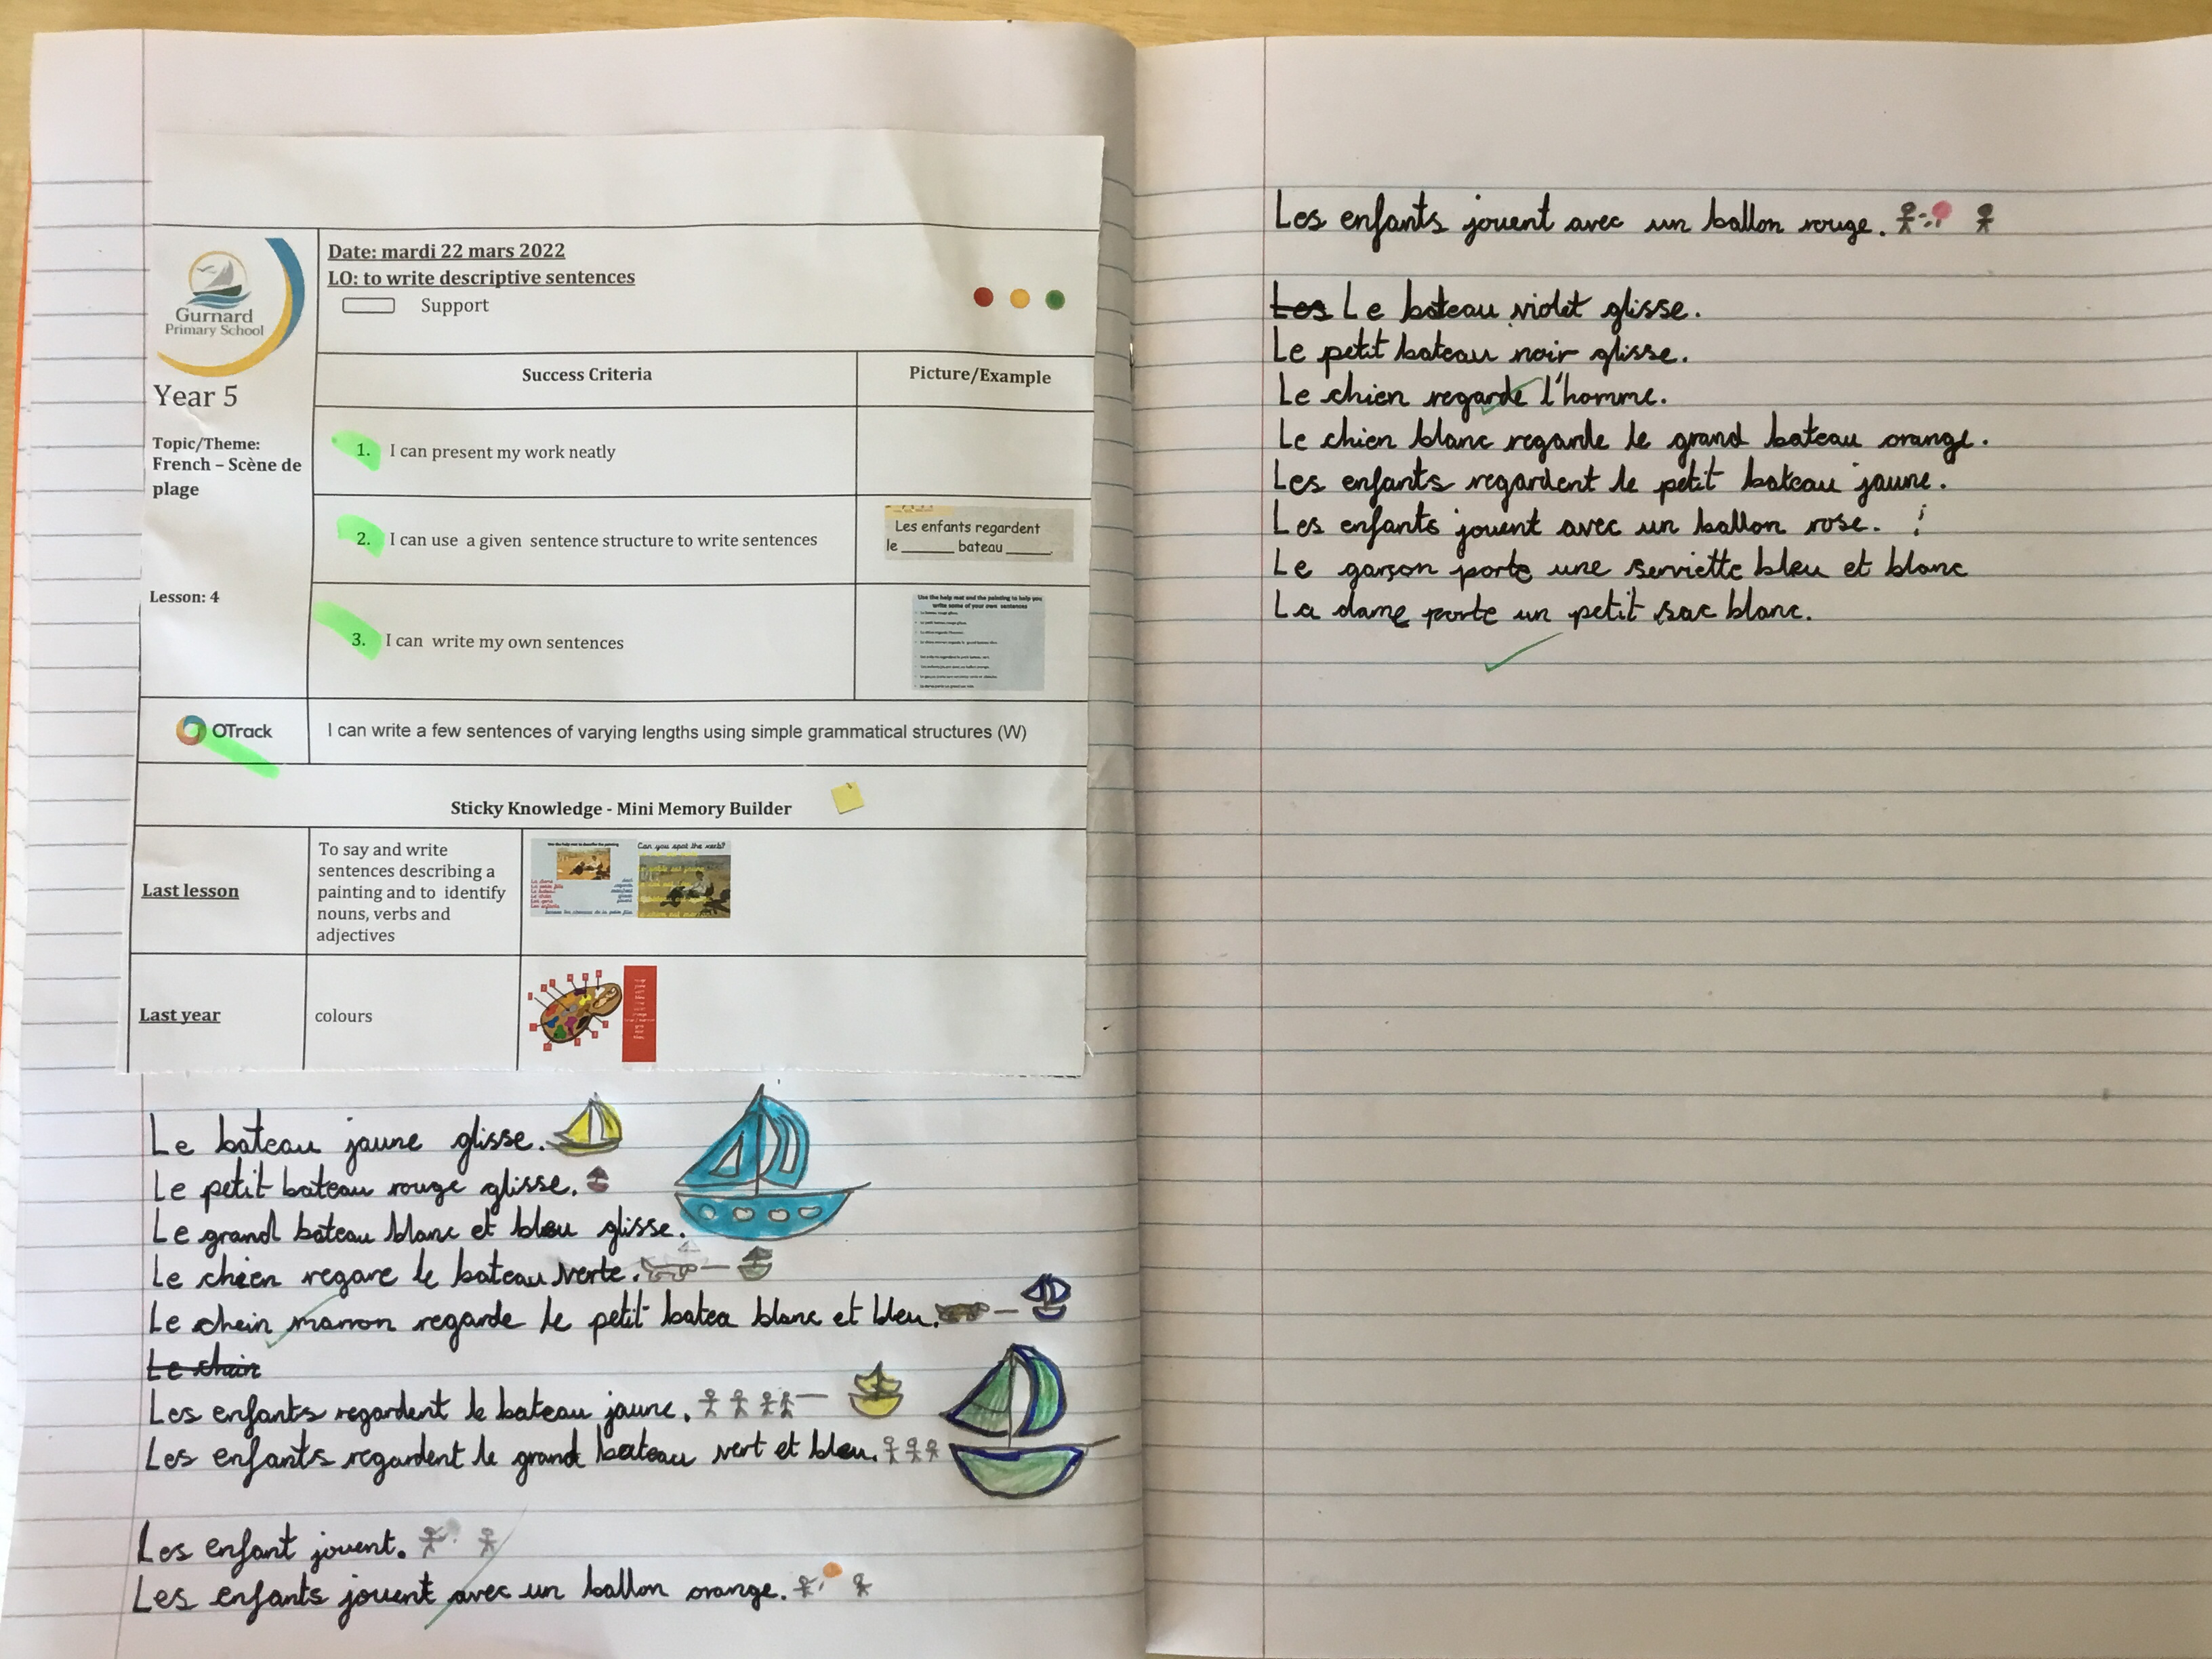 Gurnard
Primary School
Year 5
Topic/Theme:
French – Scène de
plage
Lesson: 4
Date: mardi 22 mars 2022
LO: to write descriptive sentences
Support
Success Criteria
Picture/Example
1. I can present my work neatly
2. I can use a given sentence structure to write sentences
Les enfants regardent
le ______ bateau _____.
3. I can write my own sentences
Use the help mat and the painting to help you
write some of your own sentences
OTrack
I can write a few sentences of varying lengths using simple grammatical structures (W)
Sticky Knowledge - Mini Memory Builder
Last lesson
To say and write
sentences describing a
painting and to identify
nouns, verbs and
adjectives
Can you spot the verb?
Last year
colours
Le bateau jaune glisse.
Le petit bateau rouge glisse.
Le grand bateau blanc et bleu glisse.
Le chien regare le bateau verte.
Le chein marron regarde le petit batea blanc et bleu.
Le chein
Les enfants regardent le bateau jaune.
Les enfants regardent le grand bateau vert et bleu.
Les enfant jouent.
Les enfants jouent avec un ballon orange.
Les enfants jouent avec un ballon rouge.
Les Le bateau violet glisse.
Le petit bateau noir glisse.
Le chien regarde l'homme.
Le chien blanc regarde le grand bateau orange.
Les enfants regardent le petit bateau jaune.
Les enfants jouent avec un ballon rose.
Le garson porte une serviette bleu et blanc
La dame porte un petit sac blanc.